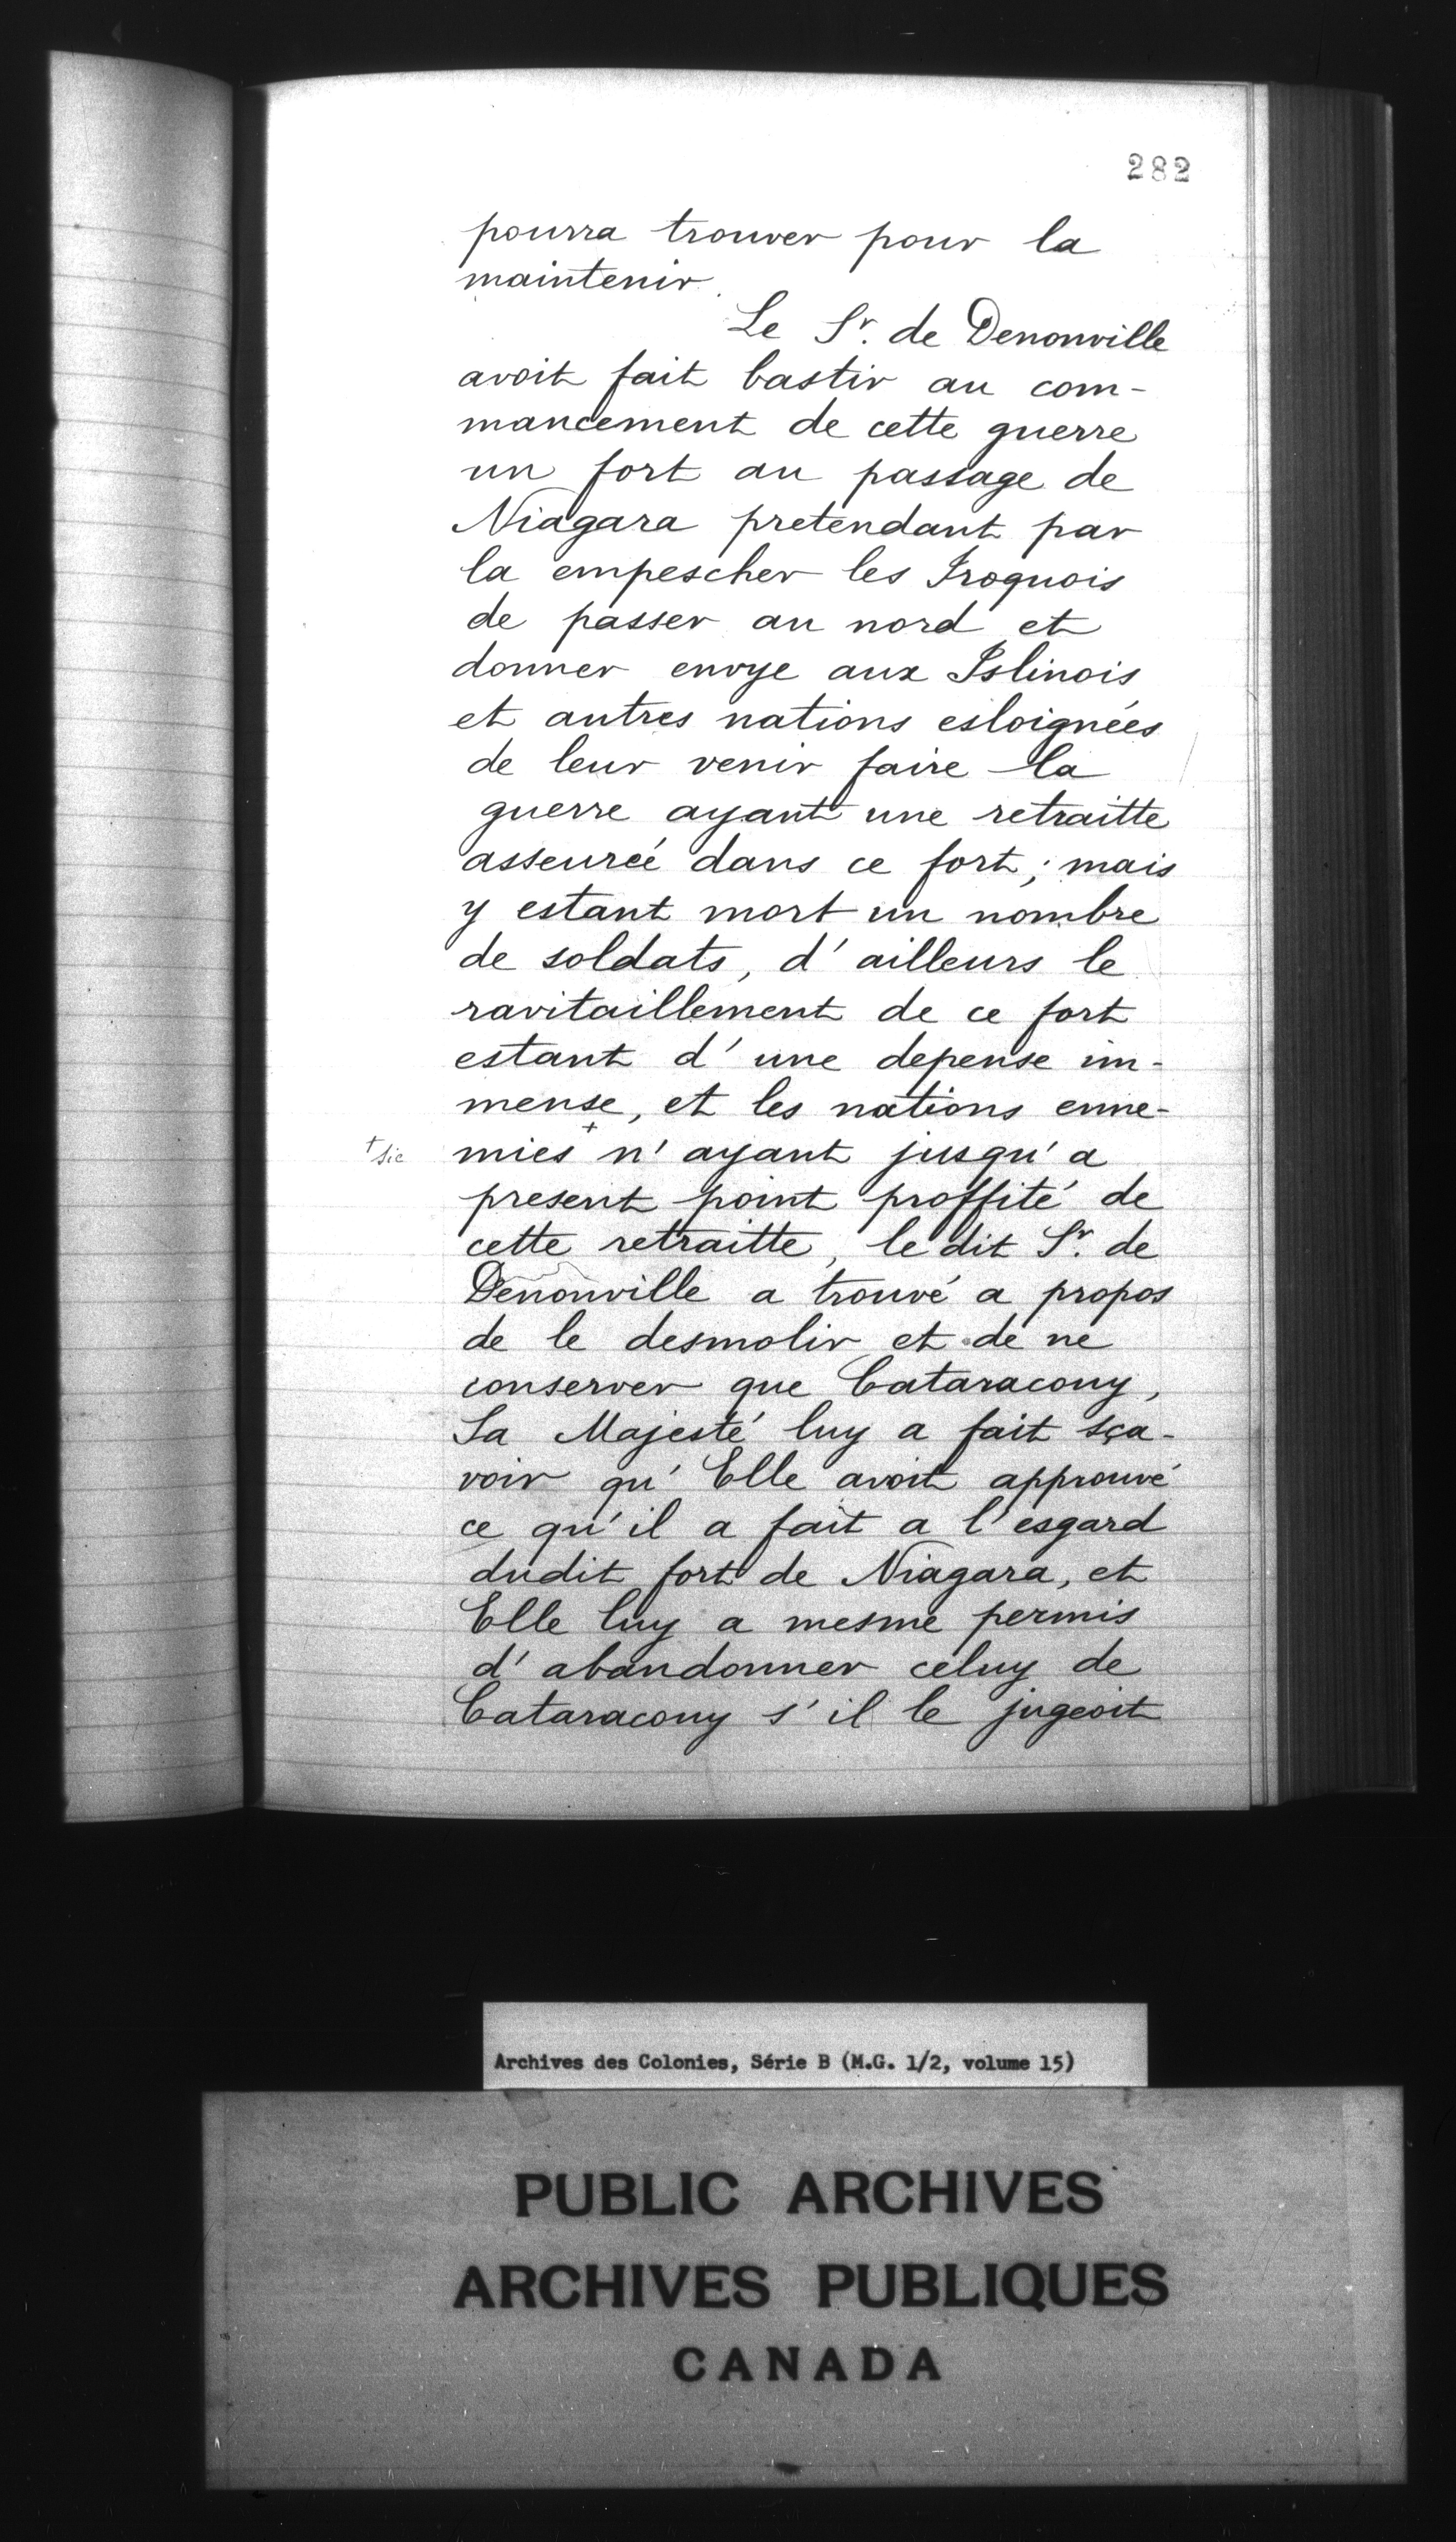 282
pourra trouver pour la
maintenir.
Le Sr. de Denonville
avoit fait bastir au com-
mancement de cette guerre
un fort au passage de
Niagara pretendant par
la empescher les Iroquois
de passer au nord et
donner envye aux Islinois
et autres nations esloignées
de leur venir faire la
guerre ayant une retraitte
asseureé dans ce fort; mais
y estant mort un nombre
de soldats, d'ailleurs le
ravitaillement de ce fort
estant d'une depense im-
mense, et les nations enne-
+ sic mies + n'ayant jusqu'a
present point proffité de
cette retraitte, le dit Sr. de
Denonville a trouvé a propos
de le desmolir et de ne
conserver que Cataracouy,
Sa Majesté luy a fait sça-
voir qu'Elle avoit approuvé
ce qu'il a fait a l'esgard
dudit fort de Niagara, et
Elle luy a mesme permis
d'abandonner celuy de
Cataracouy s'il le jugeoit
Archives des Colonies, Série B (M.G. 1/2, volume 15)
PUBLIC ARCHIVES
ARCHIVES PUBLIQUES
CANADA